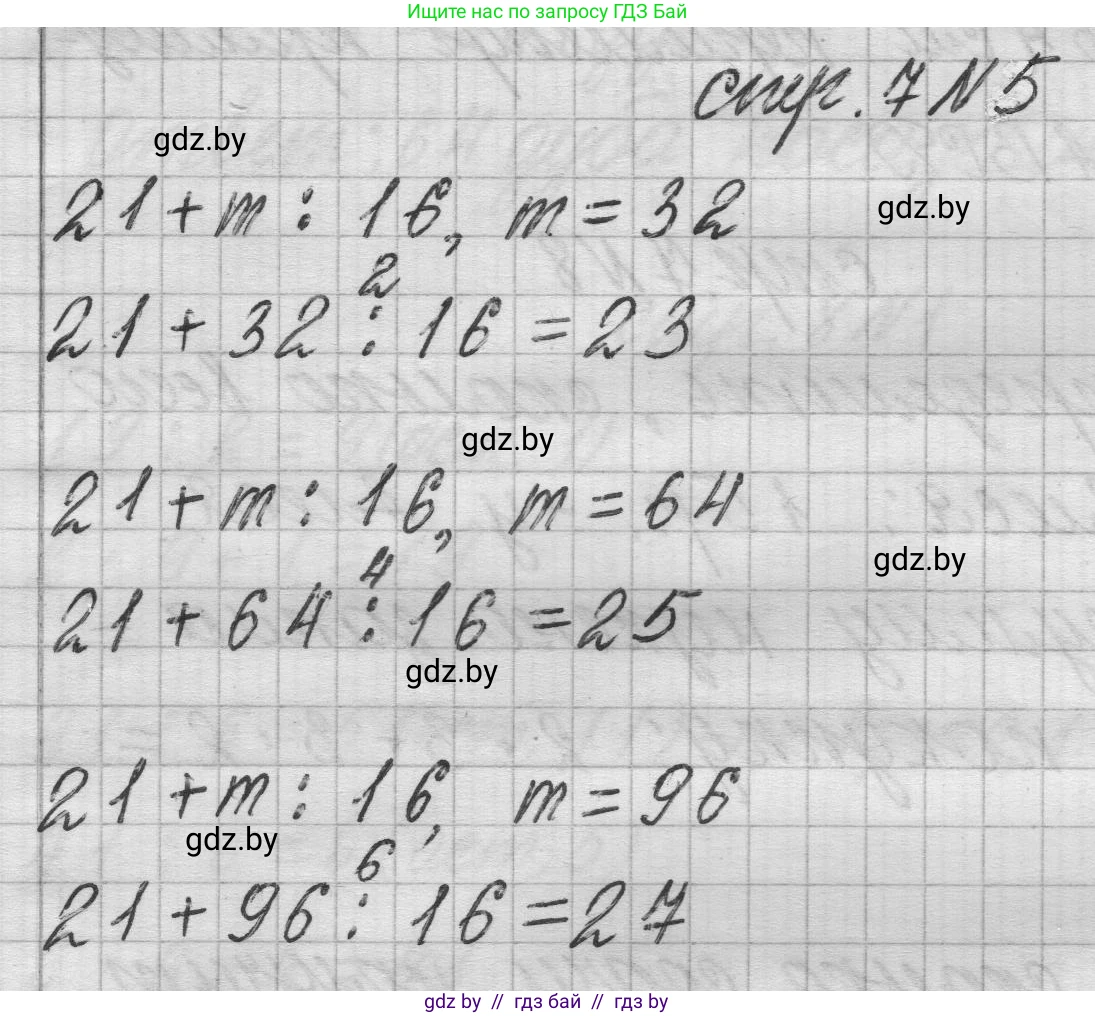 Ищите нас по запросу ГДЗ Бай
стр. 7 N 5
gdz.by
21 + m : 16, m = 32
gdz.by
2
21 + 32 : 16 = 23
gdz.by
21 + m : 16, m = 64
gdz.by
4
21 + 64 : 16 = 25
gdz.by
21 + m : 16, m = 96
gdz.by
6
21 + 96 : 16 = 27
gdz by // гдз бай // гдз by